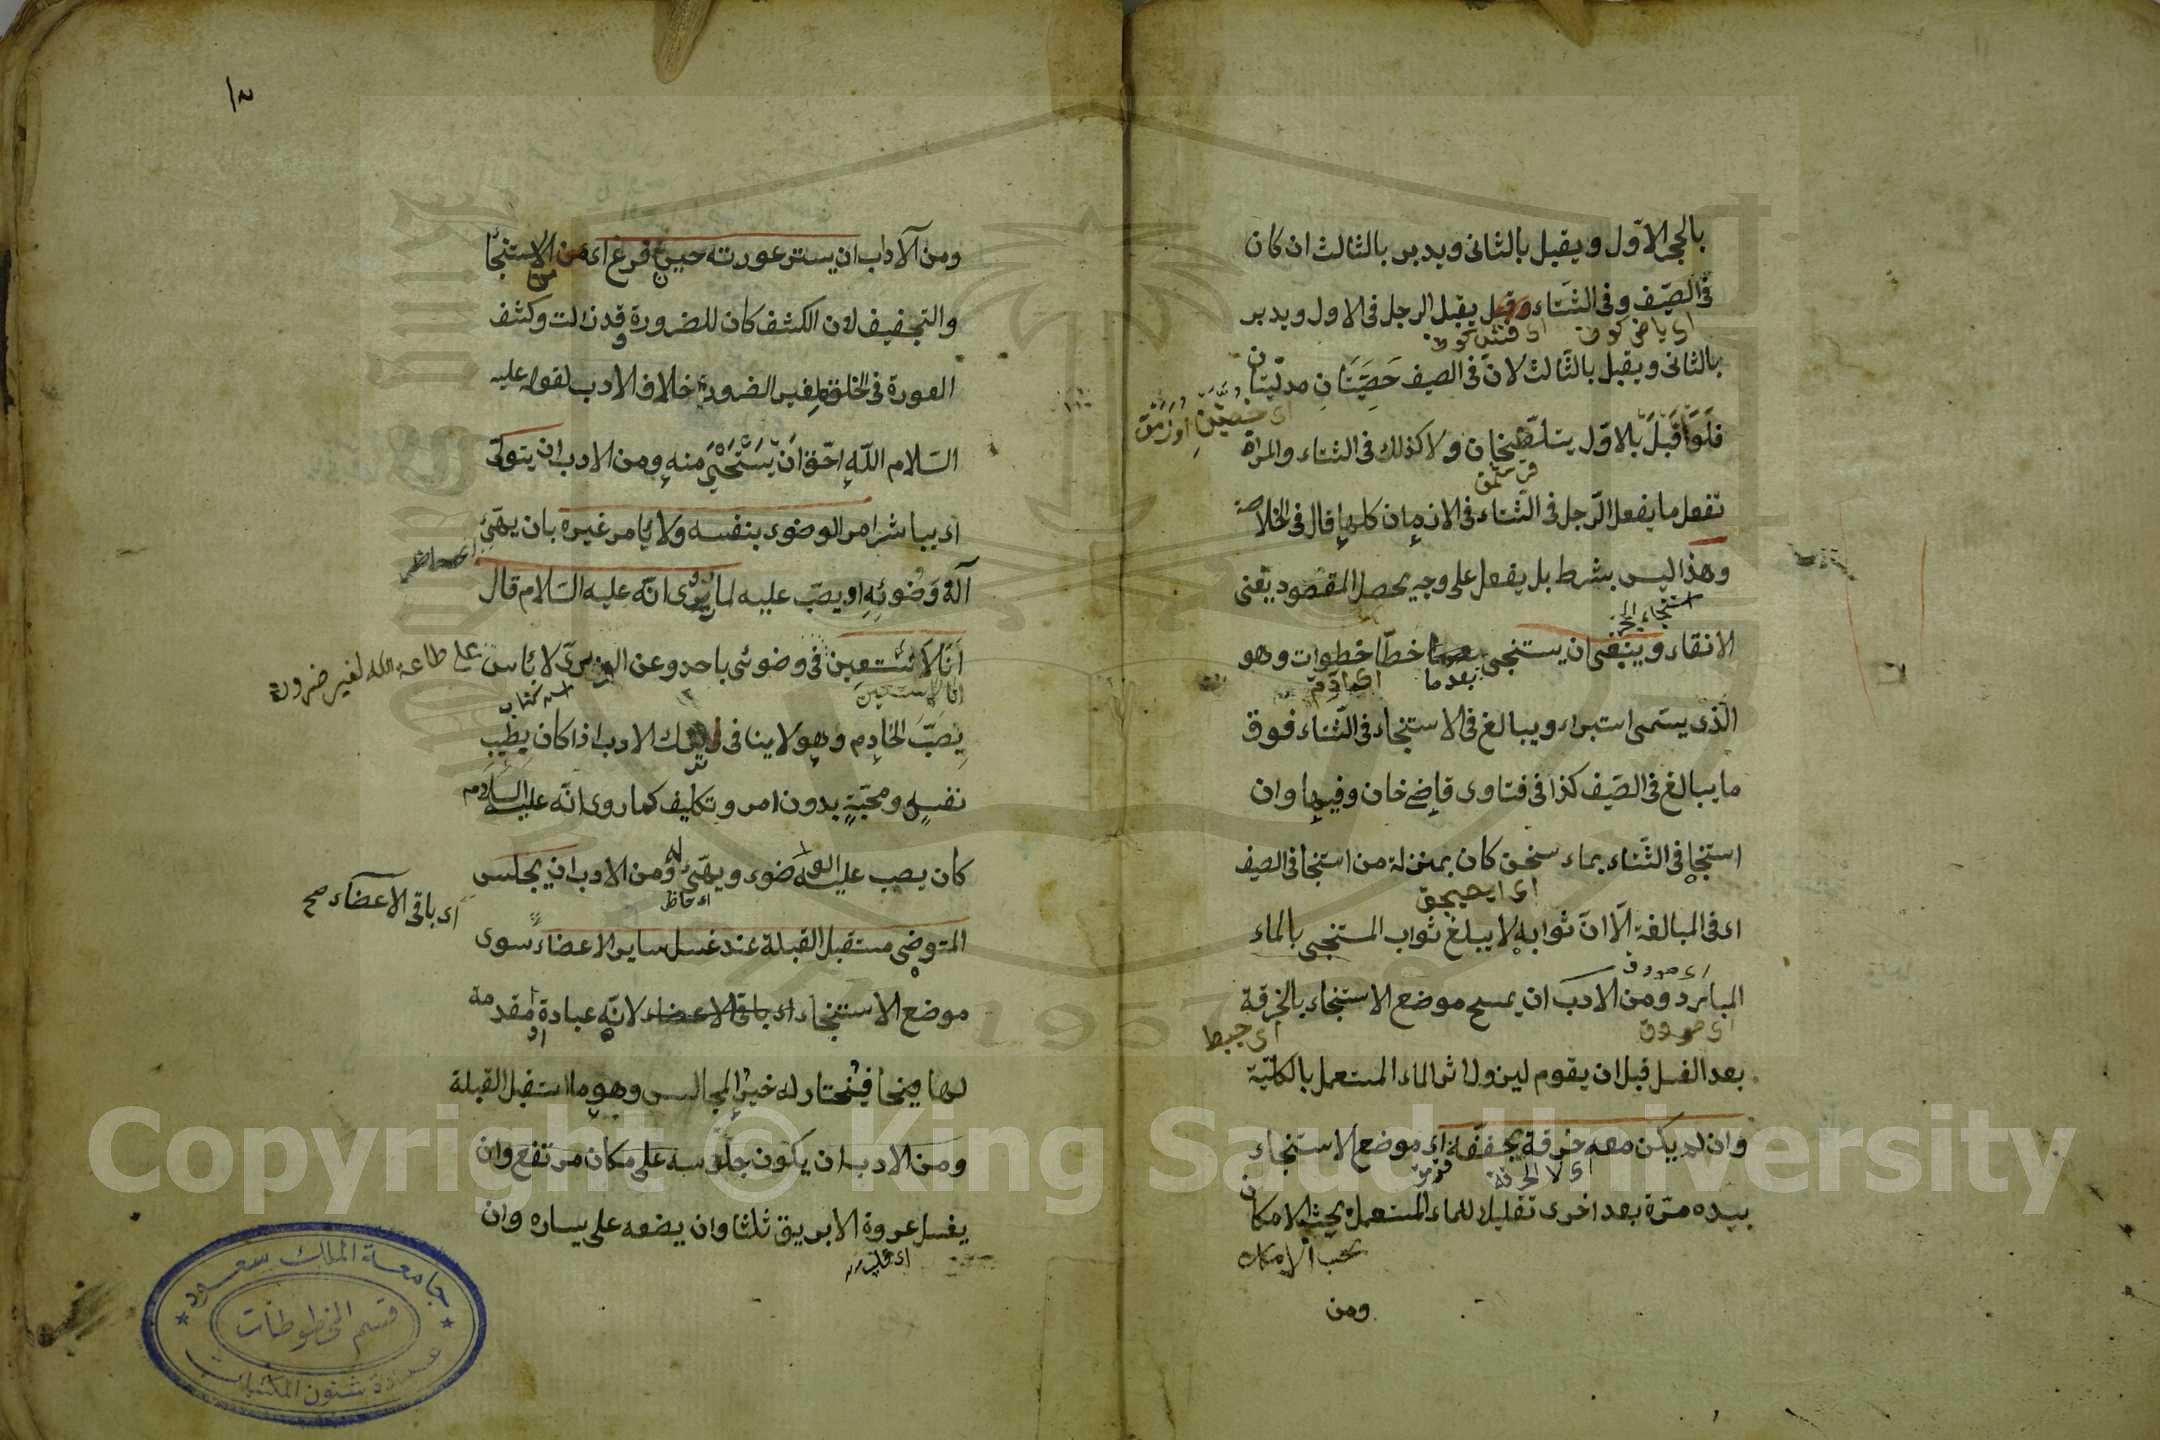 بالحجر الاوّل ويقبل بالثانى ويدبر بالثالث ان كان
فى الصّيف وفى الشتاء وقيل يقبل الرجل فى الاول ويدبر
بالثانى ويقبل بالثالث لانّ فى الصيف خصيتان مدلّيتان
فلو اقبل بالاوّل يتلطّخان ولا كذلك فى الشتاء والمراة
تفعل ما يفعل الرّجل فى الشتاء فى الازمان كلها قال فى الخلاصة
وهذا ليس بشرط بل يفعل على وجه يحصل المقصود يعنى
استنجاء الحجر
الانقاء وينبغى ان يستنجى خطّا خطوات وهو
بعدما
الذى يسمى استبراء ويبالغ فى الاستنجاء فى الشتاء فوق
ما يبالغ فى الصيف كذا فى فتاوى قاضى خان وفيها وان
استنجا فى الشتاء بماء سخن كان بمنزلة من استنجا فى الصيف
اى فى المبالغة الّا انّ ثوابه لا يبلغ ثواب المستنجى بالماء
المبارد ومن الادب ان يمسح موضع الاستنجاء بالخرقة
بعد الغسل قبل ان يقوم ليزول اثر الماء المستعمل بالكليّة
وان لم يكن معه خرقة يجففه اى موضع الاستنجاء
بيده مرّة بعد اخرى تقليلا للماء المستعمل بحسب الامكان
بحسب الامكان
ومن
١٢
ومن الآداب ان يستر عورته حين فرغ اى من الاستنجا
والتجفيف لان الكشف كان للضرورة وقد زالت وكشف
العورة فى الخلوة لغير الضرورة خلاف الادب لقوله عليه
السّلام اللّه احقّ ان يستحيى منه ومن الادب ان يتوكّى
اى يباشر امر الوضوء بنفسه ولا يأمر غيره بان يهيّئ
آلة وضوئه او يصبّ عليه لما روى انّه عليه السّلام قال
انّا لا نستعين فى وضوئى باحد وعن الوبرىّ لا بأس
على طاعة الله لغير ضرورة
انا لا نستعين
اسم كتاب
بصبّ الخادم وهو لا ينافى ترك الادب اذا كان بطيب
نفس ومحبّة بدون امر وتكليف كما روى انّه عليه السّلام
كان يصب عليه الوضوء ويهيّئ له ومن الادب ان يجلس
المتوضى مستقبل القبلة عند غسل ساير الاعضاء سوى
اى باقى الآعضاء صح
موضع الاستنجاء اى باقى الاعضاء لانّه عبادة او مقدمة
لها فيختار له خير المجالس وهو ما استقبل القبلة
ومن الادب ان يكون جلوسه على مكان مرتفع وان
يغسل عروة الابريق ثلثا وان يضعه على يساره وان
جامعة الملك سعود
قسم المخطوطات
عمادة شئون المكتبات
1957
Copyright © King Saud University